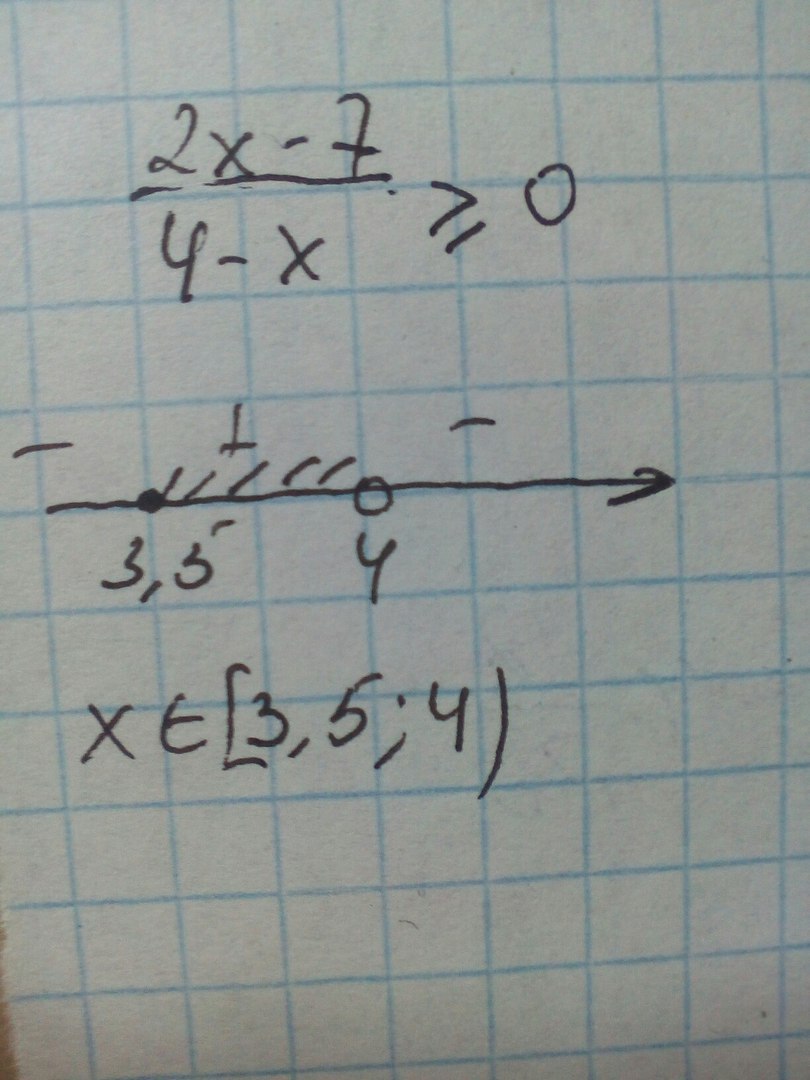 2x - 7
4 - x
⩾ 0
- + -
3,5 4
x ∈ [3,5; 4)